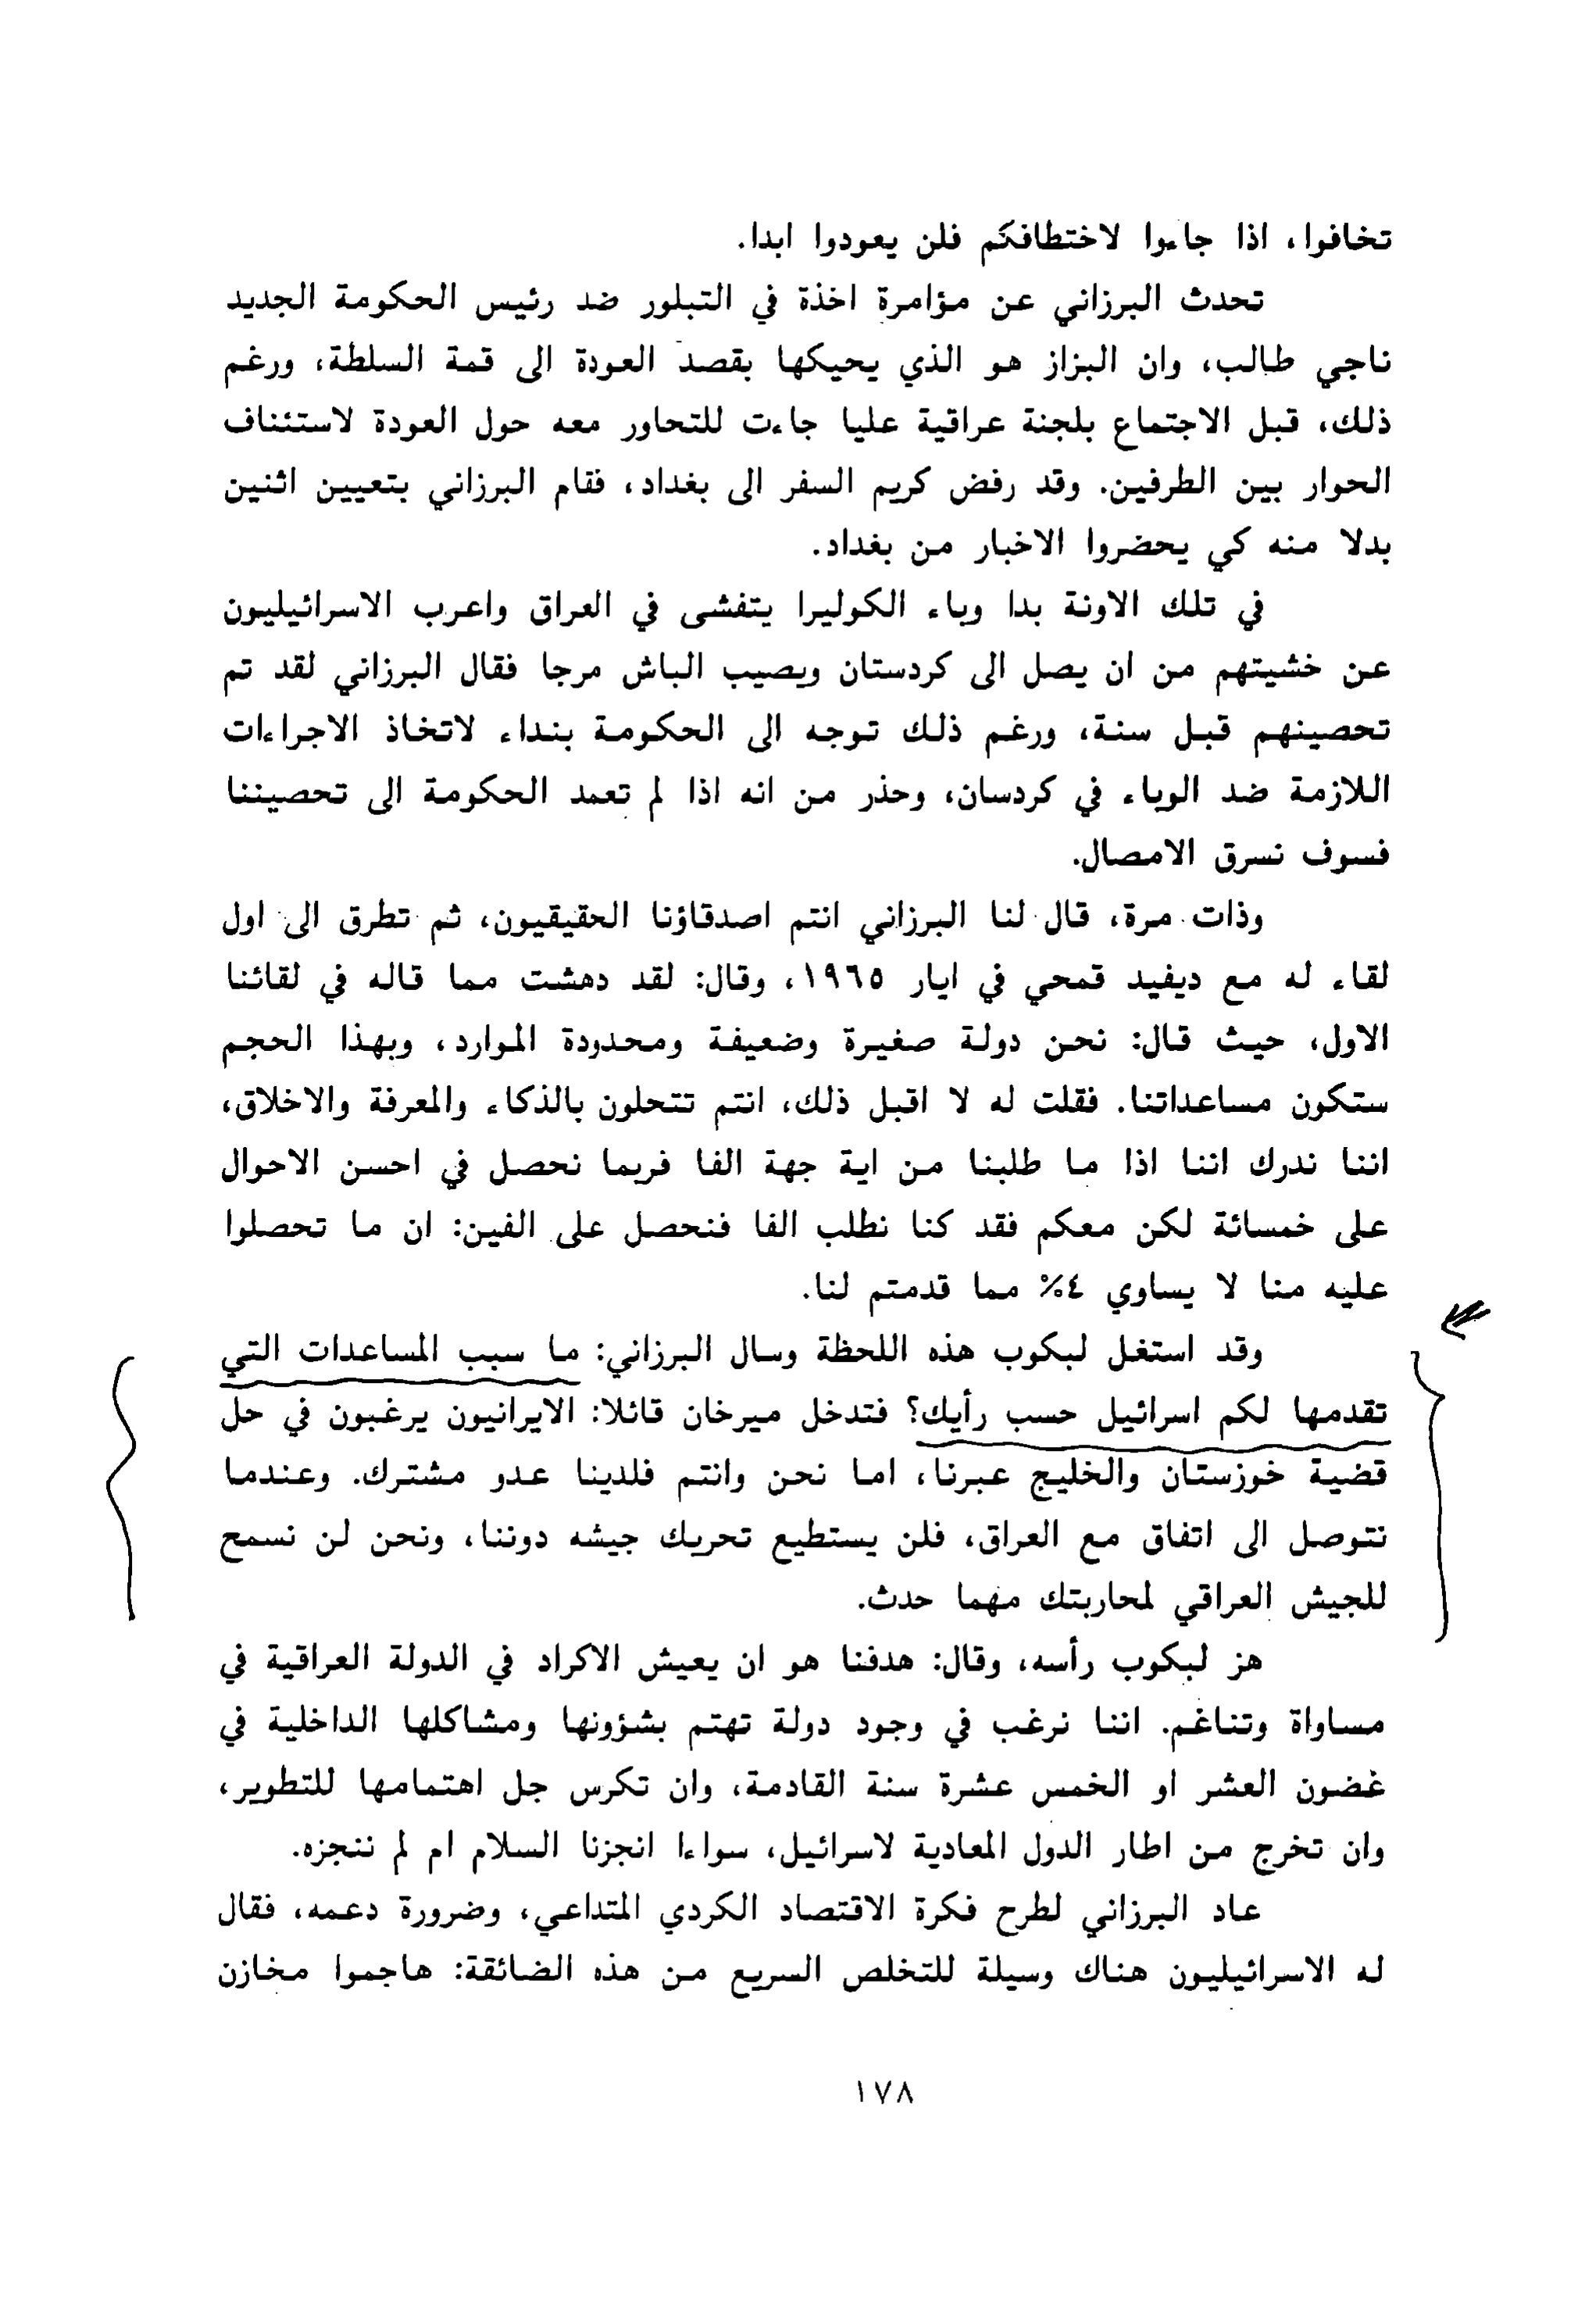 تخافوا، اذا جاءوا لاختطافكم فلن يعودوا ابدا.
تحدث البرزاني عن مؤامرة اخذة في التبلور ضد رئيس الحكومة الجديد
ناجي طالب، وان البزاز هو الذي يحيكها بقصد العودة الى قمة السلطة، ورغم
ذلك، قبل الاجتماع بلجنة عراقية عليا جاءت للتحاور معه حول العودة لاستئناف
الحوار بين الطرفين. وقد رفض كريم السفر الى بغداد، فقام البرزاني بتعيين اثنين
بدلا منه كي يحضروا الاخبار من بغداد.
في تلك الاونة بدا وباء الكوليرا يتفشى في العراق واعرب الاسرائيليون
عن خشيتهم من ان يصل الى كردستان ويصيب الباش مرجا فقال البرزاني لقد تم
تحصينهم قبل سنة، ورغم ذلك توجه الى الحكومة بنداء لاتخاذ الاجراءات
اللازمة ضد الوباء في كردسان، وحذر من انه اذا لم تعمد الحكومة الى تحصيننا
فسوف نسرق الامصال.
وذات مرة، قال لنا البرزاني انتم اصدقاؤنا الحقيقيون، ثم تطرق الى اول
لقاء له مع ديفيد قمحي في ايار ١٩٦٥، وقال: لقد دهشت مما قاله في لقائنا
الاول، حيث قال: نحن دولة صغيرة وضعيفة ومحدودة الموارد، وبهذا الحجم
ستكون مساعداتنا. فقلت له لا اقبل ذلك، انتم تتحلون بالذكاء والمعرفة والاخلاق،
اننا ندرك اننا اذا ما طلبنا من اية جهة الفا فربما نحصل في احسن الاحوال
على خمسائة لكن معكم فقد كنا نطلب الفا فنحصل على الفين: ان ما تحصلوا
عليه منا لا يساوي ٤% مما قدمتم لنا.
وقد استغل لبكوب هذه اللحظة وسال البرزاني: ما سبب المساعدات التي
تقدمها لكم اسرائيل حسب رأيك؟ فتدخل ميرخان قائلا: الايرانيون يرغبون في حل
قضية خوزستان والخليج عبرنا، اما نحن وانتم فلدينا عدو مشترك. وعندما
نتوصل الى اتفاق مع العراق، فلن يستطيع تحريك جيشه دوننا، ونحن لن نسمح
للجيش العراقي لمحاربتك مهما حدث.
هز لبكوب رأسه، وقال: هدفنا هو ان يعيش الاكراد في الدولة العراقية في
مساواة وتناغم. اننا نرغب في وجود دولة تهتم بشؤونها ومشاكلها الداخلية في
غضون العشر او الخمس عشرة سنة القادمة، وان تكرس جل اهتمامها للتطوير،
وان تخرج من اطار الدول المعادية لاسرائيل، سواءا انجزنا السلام ام لم ننجزه.
عاد البرزاني لطرح فكرة الاقتصاد الكردي المتداعي، وضرورة دعمه، فقال
له الاسرائيليون هناك وسيلة للتخلص السريع من هذه الضائقة: هاجموا مخازن
١٧٨